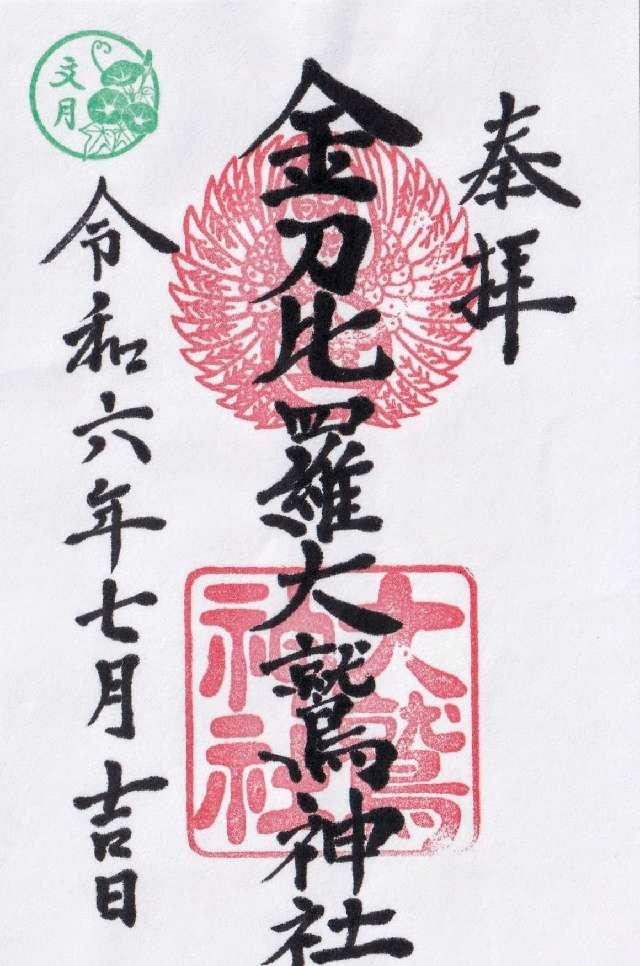 奉拝
金刀比羅大鷲神社
大鷲
神社
令和六年七月吉日
文月